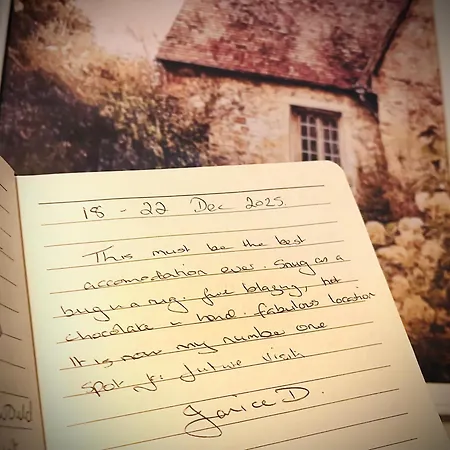 18 - 22 Dec 2025
This must be the best
accomodation ever. Snug as a
bug in a rug. fire blazing, hot
chocolate in hand. fabulous location
It is now my number one
spot for future visits
Janice D.